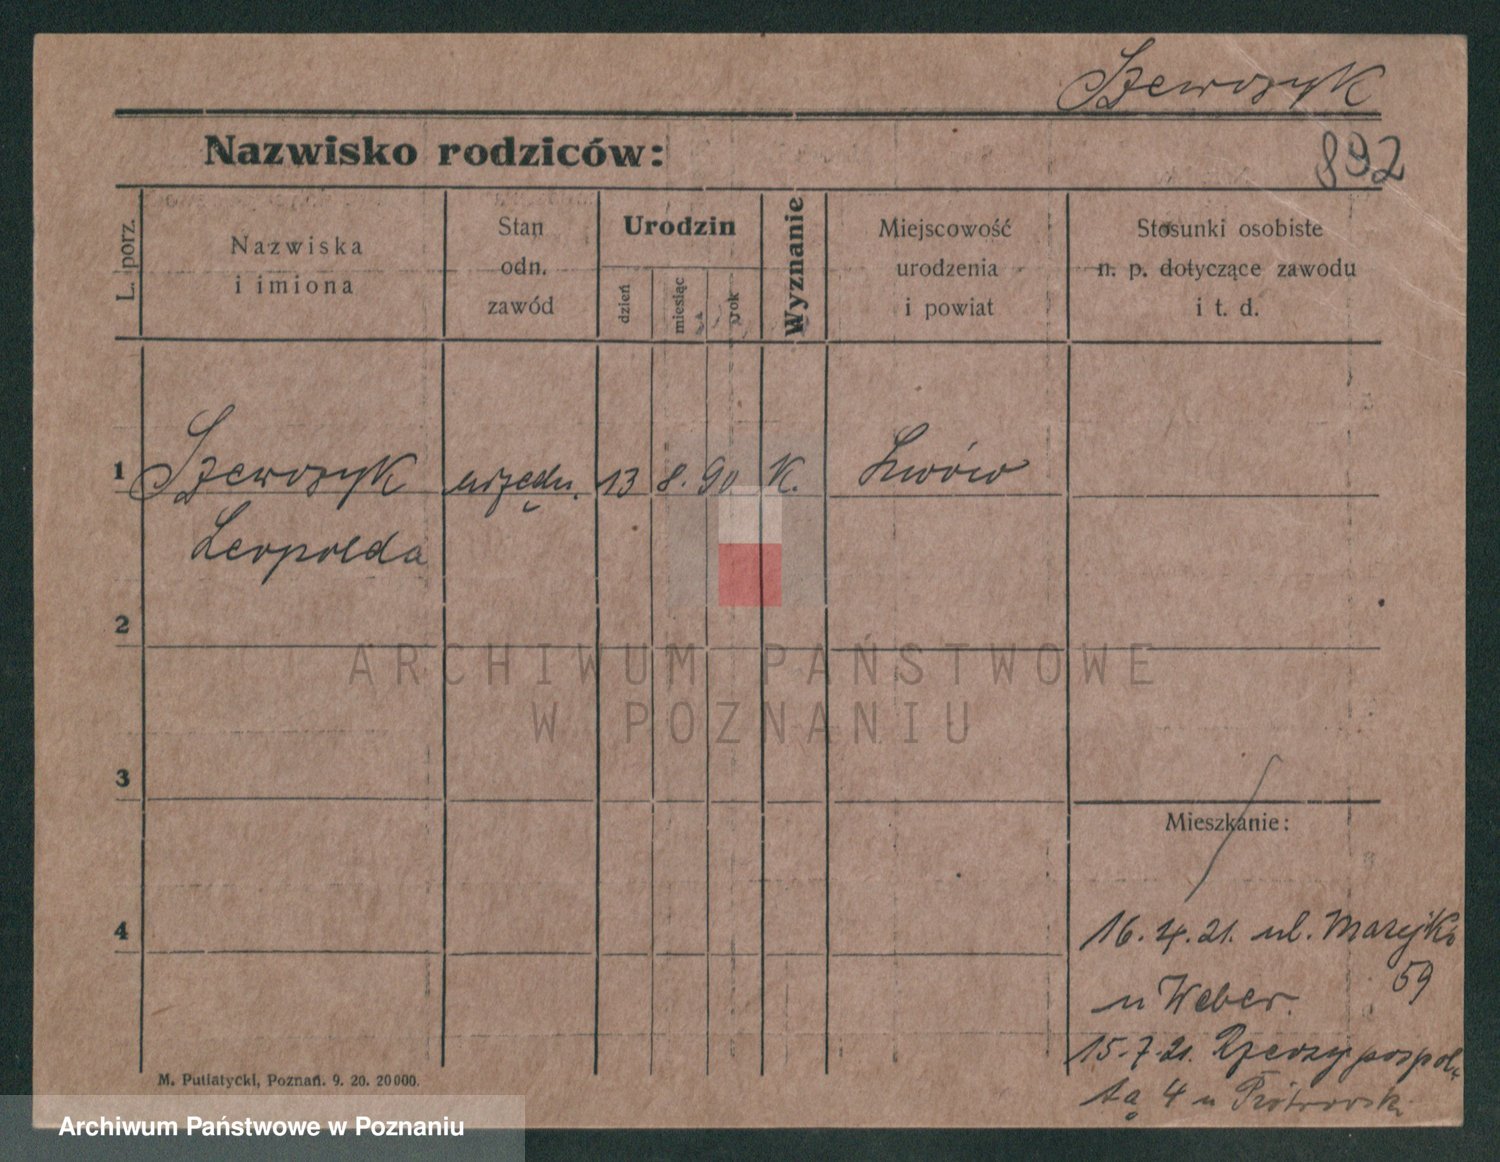 Szewczyk
892
Nazwisko rodziców:
L. porz.
Nazwiska
i imiona
Stan
odn.
zawód
Urodzin
dzień
miesiąc
rok
Wyznanie
Miejscowość
urodzenia
i powiat
Stosunki osobiste
n. p. dotyczące zawodu
i t. d.
1 Szewczyk urzędn. 13 8. 90 K. Lwów
Leopolda
2
3
4
ARCHIWUM PAŃSTWOWE
W POZNANIU
Mieszkanie:
16. 4. 21. ul.
59
u Weber.
15-7-21. Rzeczypospol-
tą 4 u Piotrowski
M. Putiatycki, Poznań. 9. 20. 20000.
Archiwum Państwowe w Poznaniu